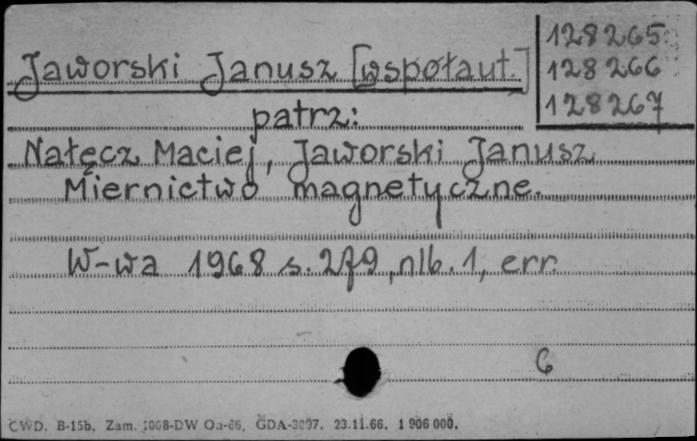 128265
Jaworski Janusz [współaut.]
128266
128267
patrz:
Nałęcz Maciej, Jaworski Janusz
Miernictwo magnetyczne.
W-wa 1968 s. 279, nlb. 1, err.
6
CWD. B-15b. Zam. 1008-DW Oa-66. GDA-3097. 23.11.66. 1 906 000.